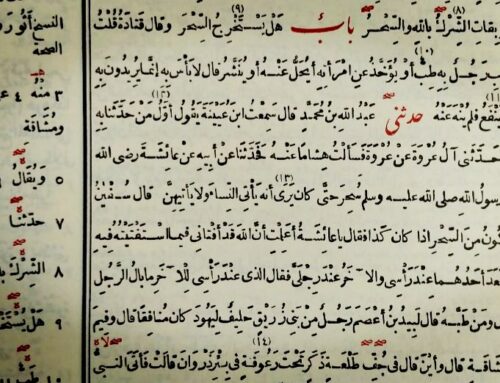 بقات الشرك بالله والسحر باب هل يستخرج السحر وقال قتادة قلت
رجل به طب أو يؤخذ عن امرأته أيحل عنه أو ينشر قال لا بأس به إنما يريدون به
ينفع فلم ينه عنه حدثني عبد الله بن محمد قال سمعت ابن عيينة يقول أول من حدثنا به
حدثني آل عروة عن عروة فسألت هشاما عنه فحدثنا عن أبيه عن عائشة رضى الله
رسول الله صلى الله عليه وسلم سحر حتى كان يرى أنه يأتى النساء ولا يأتيهن قال سفين
ون من السحر إذا كان كذا فقال يا عائشة أعلمت أن الله قد أفتانى فيما استفتيته فيه
عد أحدهما عند رأسى والآخر عند رجلى فقال الذى عند رأسى للآخر ما بال الرجل
ومن طبه قال لبيد بن أعصم رجل من بنى زريق حليف ليهود كان منافقا قال وفيم
شاقة قال وأين قال فى جف طلعة ذكر تحت رعوفة فى بئر ذروان قالت فأتى النبى
النسخ
الصحة
٣ منه ٤
ومشاقة
٥ ويقال
٧ حدثنا
٨ الشرك
٩ هل يستخ